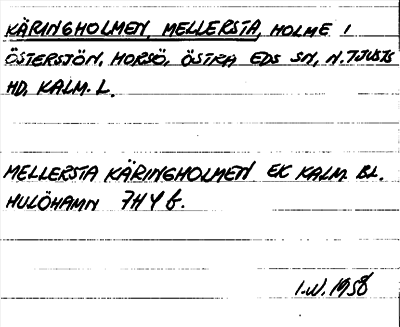 KÄRINGHOLMEN, MELLERSTA, HOLME I
ÖSTERSJÖN, HORSÖ, ÖSTRA EDS SN, N. TJUSTS
HD, KALM. L.
MELLERSTA KÄRINGHOLMEN EK KALM. BL.
HULÖHAMN 7H Y f.
I.W. 1958